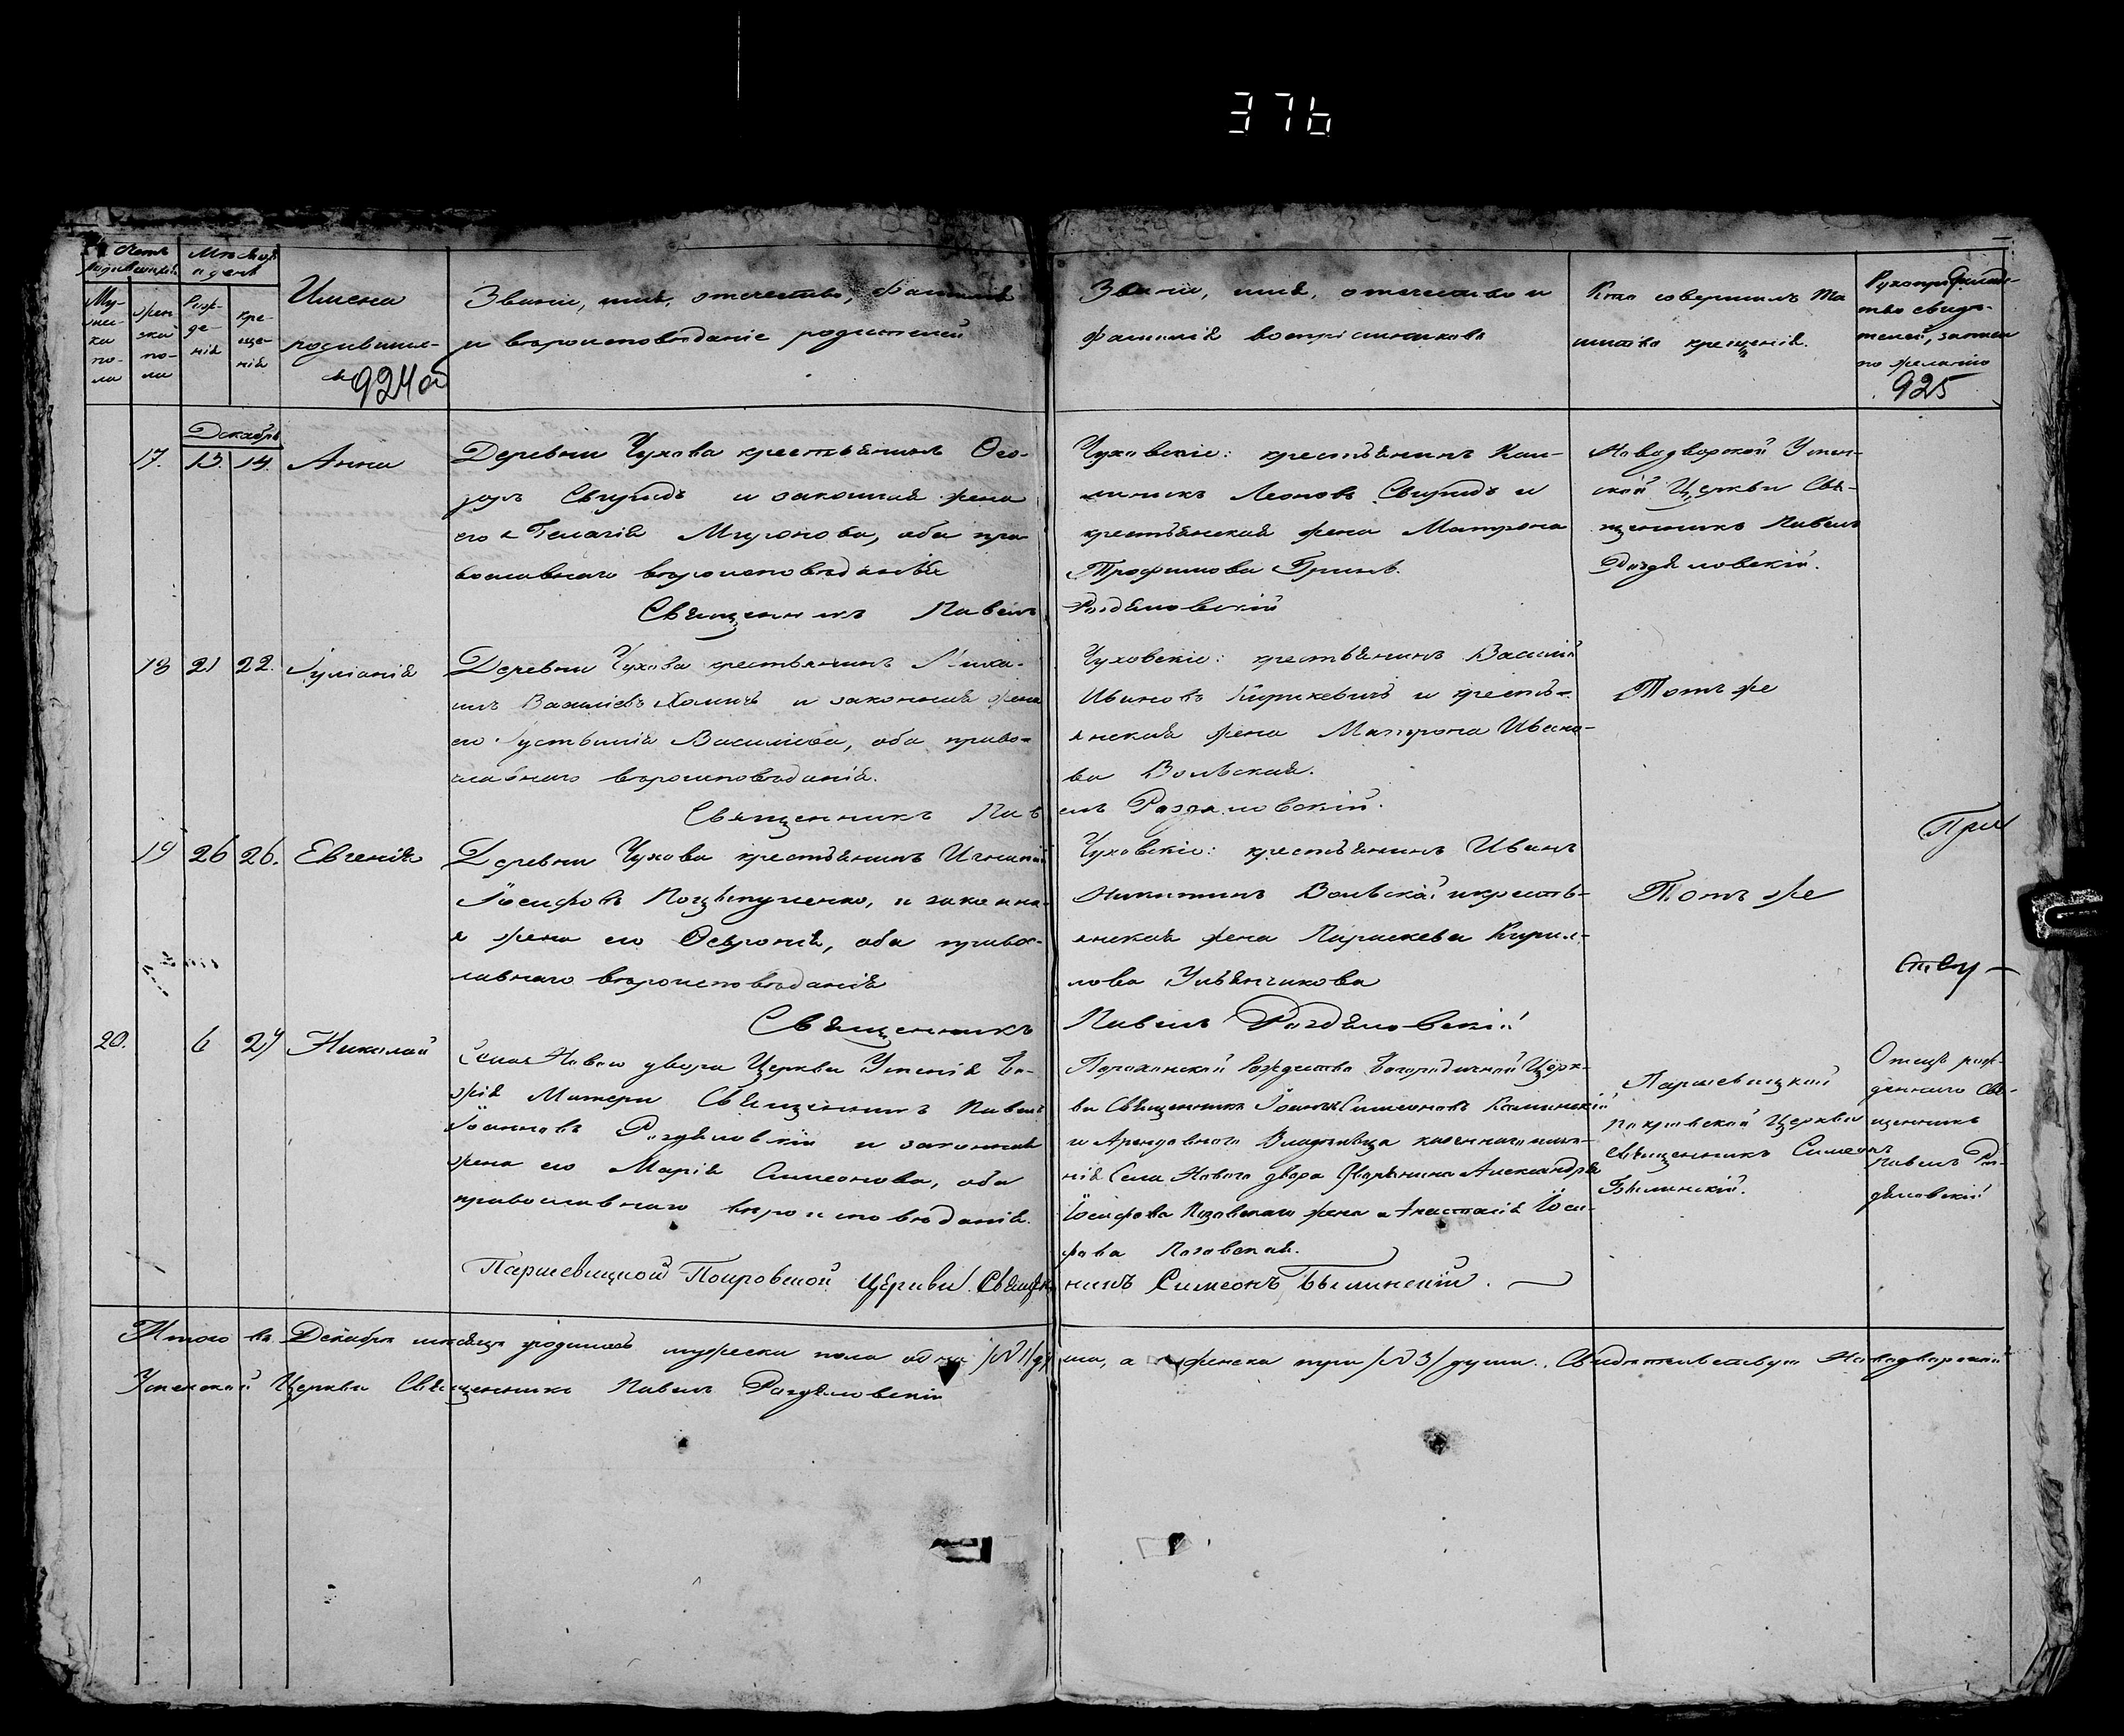 376
Счетъ родившихся
Мѣсяцъ и день
Мужеска пола
Женска пола
Рожденія
Крещенія
Имена
родившихся
924 об
Званіе, имя, отечество, фамилія
и вѣроисповѣданіе родителей
Званіе, имя, отечество и
фамилія воспріемниковъ
Кто совершилъ та
инство крещенія.
Рукоприкладс-
тво свидѣ-
телей, записи
по желанію
925
Декабрь
17. 13. 14. Анна
Деревни Чухова крестьянинъ Ѳео-
доръ Свиридъ и законная жена
его Пелагія Миронова, оба пра
вославнаго вѣроисповѣданія
Священникъ Павелъ
Чуховскіе: крестьянинъ
Леоновъ Свиридъ и
крестьянская жена Матрона
Трофимова Гринь.
Раздяловскій
Новодворской Успен-
ской Церкви Свя-
щенникъ Павелъ
Раздяловскій.
18 21 22. Іуліанія
Деревни Чухова крестьянинъ Миха-
илъ Васильевъ Хомичъ и законная жена
его Іустинія Васильева, оба право-
славнаго вѣроисповѣданія.
Священникъ Пав
Чуховскіе: крестьянинъ Василій
Ивановъ Киркевичъ и кресть-
янская жена Матрона Ивано-
ва Вольская.
елъ Раздяловскій.
Тотъ же
19 26 26. Евгенія
Деревни Чухова крестьянинъ Игнатій
Іосифовъ и законна-
я жена его Ѳевронія, оба правос-
лавнаго вѣроисповѣданія
Священникъ
Чуховскіе: крестьянинъ Иванъ
Никитинъ Вольскій и кресть-
янская жена Параскева Кирил-
лова Ульянчикова
Павелъ Раздяловскій
Тотъ же
При
20. 6 27 Николай
Села Новаго двора Церкви Успенія Бо-
жія Матери Священникъ Павелъ
Іоанновъ Раздяловскій и законная
жена его Марія Симеонова, оба
православнаго вѣроисповѣданія.
Паршевицкой Покровской Церкви Священ
Порохонской Рождества Богородичной Церк-
ви Священникъ Іоаннъ Симеоновъ Каминскій
и Арендовнаго Владѣльца казеннаго имѣ-
нія Села Новаго двора Дворянина Александра
Іосифова жена Анастасія Іоси-
фова
никъ Симеонъ Былинскій.
Паршевицкой
Покровской Церкви
священникъ Симеонъ
Былинскій.
Отецъ рож-
деннаго Свя-
щенникъ
Павелъ Раз-
дяловскій
Итого въ Декабрѣ мѣсяцѣ родилось мужеска пола одна /№ 1/ ду ша, а женска три /№ 3/ души. Свидѣтельствую Новодворской
Успенской Церкви Священникъ Павелъ Раздяловскій